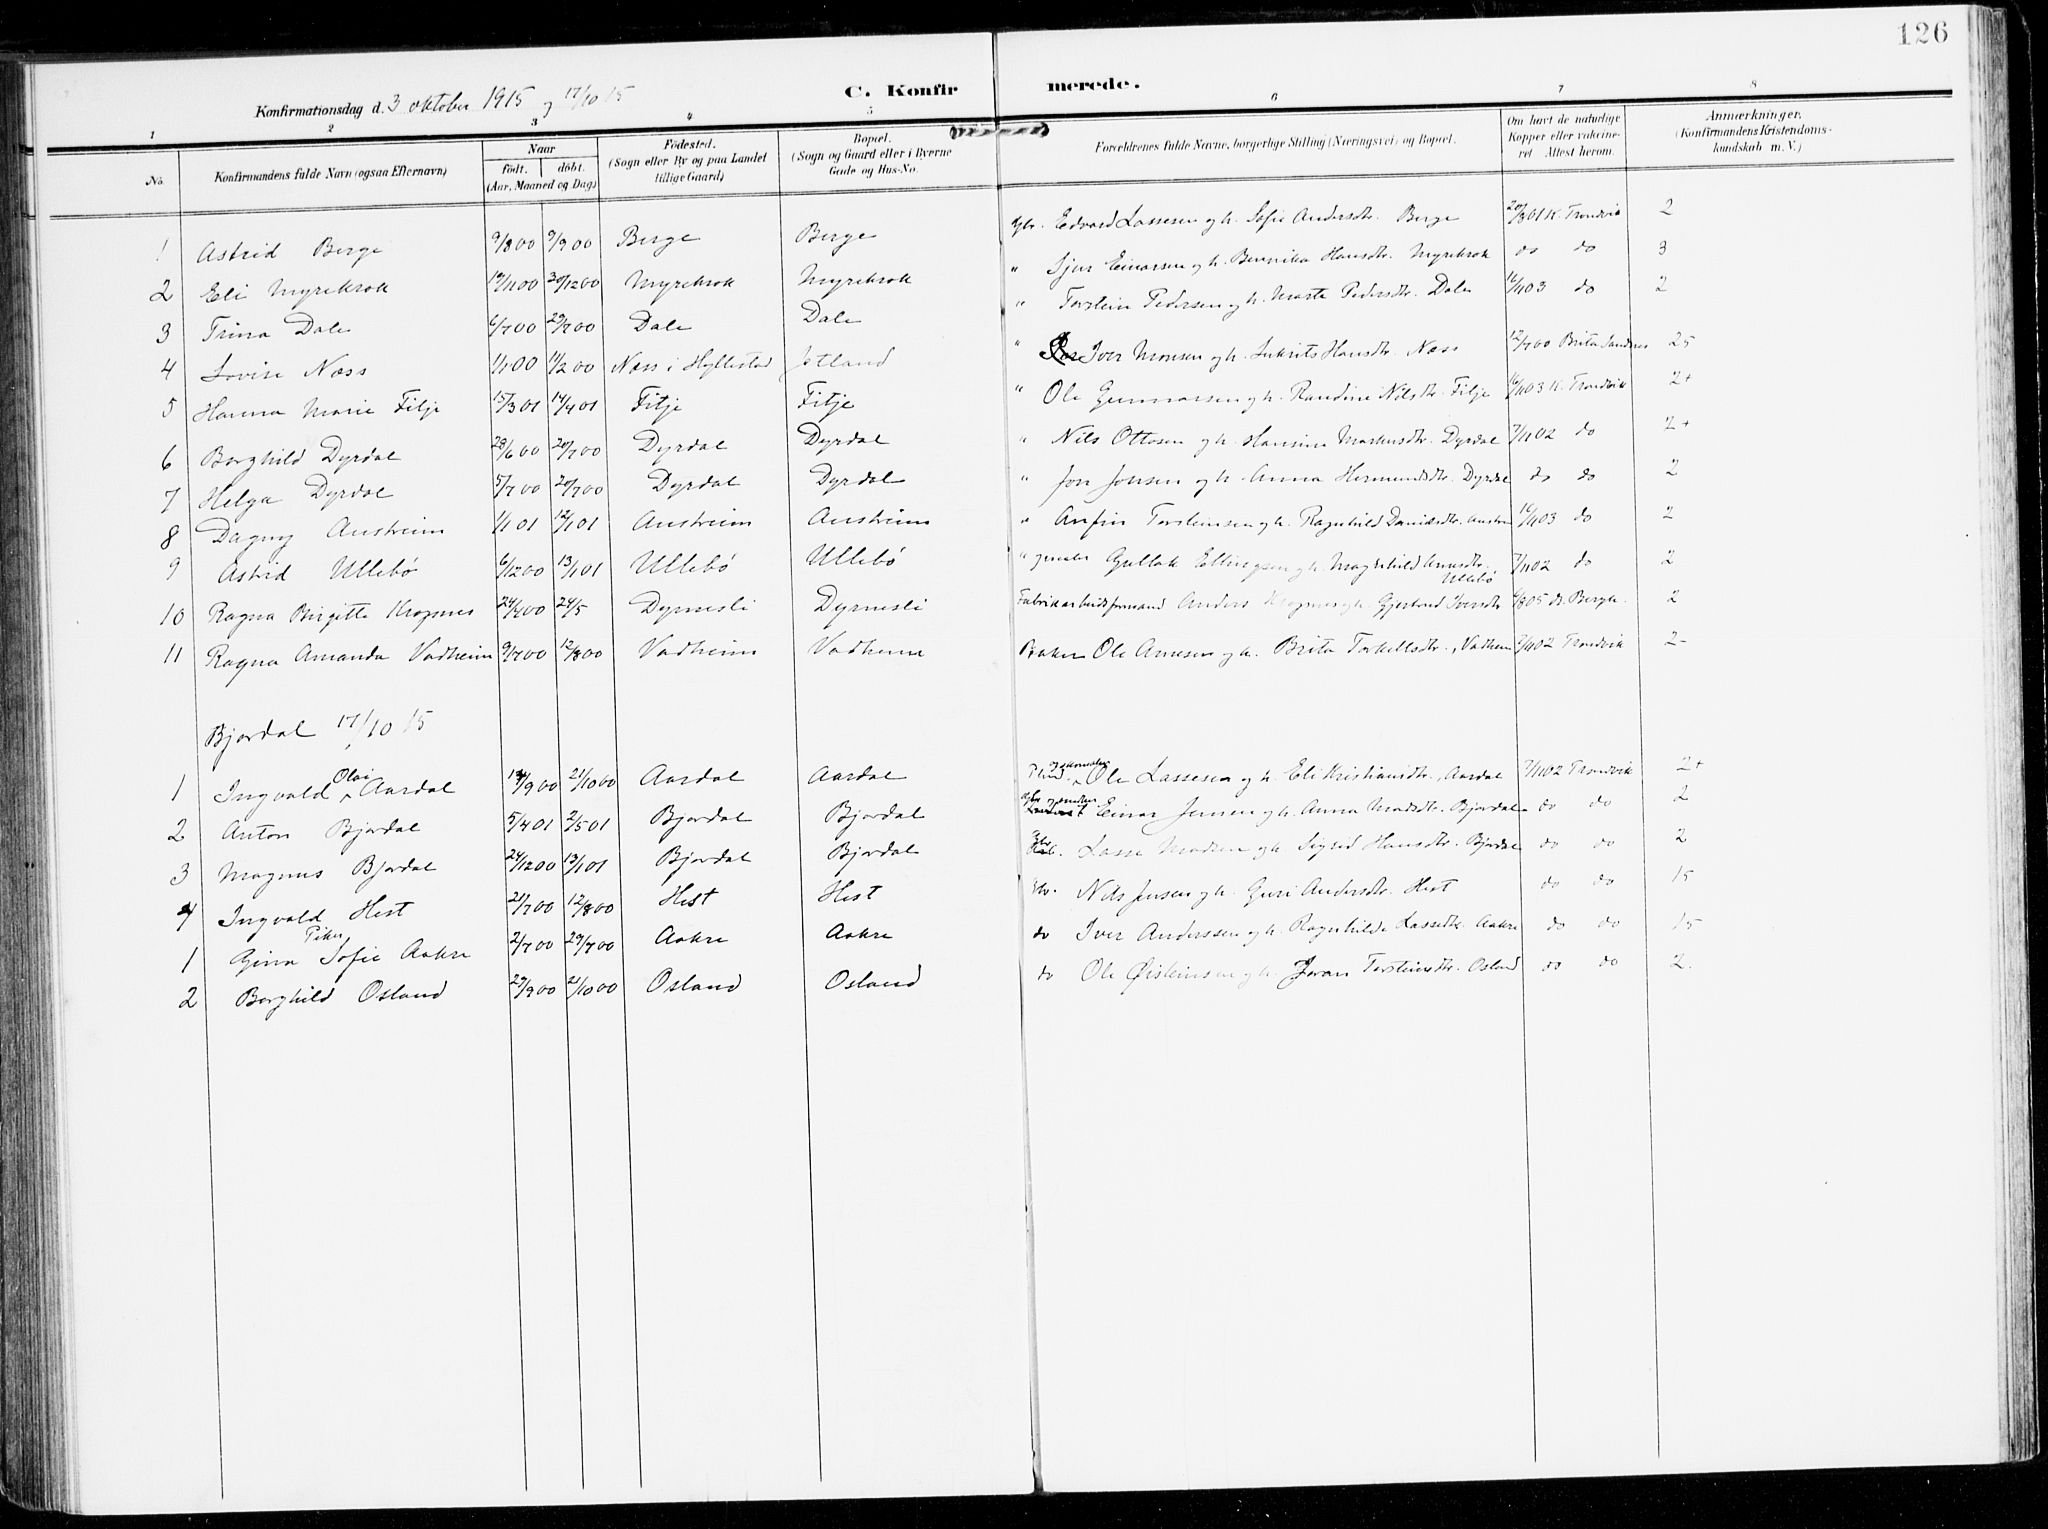 126
C. Konfirmerede.
Konfirmationsdag d. 3 oktober 1915 og 17/10 15
1 2 3 4 5 6 7 8
No. Konfirmandens fulde Navn (ogsaa Efternavn) Naar födt. döbt. (Aar, Maaned og Dag) Födested. (Sogn eller By og paa Landet tillige Gaard) Bopæl. (Sogn og Gaard eller i Byerne Gade og Hus-No. Forældrenes fulde Navne, borgerlige Stilling (Næringsvei) og Bopæl. Om havt de naturlige Kopper eller vakcineret. Attest herom. Anmærkninger. (Konfirmandens Kristendomskundskab m. V.)
1 Astrid Berge 9/8 00 9/9 00 Berge Berge Gbr. Edvard Lassesen og h. Sofie Andersdtr. Berge 20/8 01 K. Trondvik 2
2 Eli Myreksok 19/11 00 30/12 00 Myreksok Myreksok " Sjur Einarsen og h. Hansdtr. Myreksok do do 3
3 Trina Dale 6/7 00 29/7 00 Dale Dale " Torstein Pedersen og h. Marta Pedersdtr. Dale 16/11 03 do 2
4 Lovise Næss 1/1 00 11/2 00 Næss i Hyllestad " Iver Monsen og h. Hansdtr. Næss 12/7 00 Brita 25
5 Hanna Marie Fitje 15/3 01 14/4 01 Fitje Fitje " Ole Gunnarsen og h. Randine Nilsdtr. Fitje 16/11 03 K. Trondvik 2+
6 Borghild Dyrdal 23/6 00 20/7 00 Dyrdal Dyrdal " Nils Ottosen og h. Hansine Markusdtr. Dyrdal 7/11 02 do 2+
7 Helga Dyrdal 5/7 00 20/7 00 Dyrdal Dyrdal " Jon Jonsen og h. Anna Hermundsdtr. Dyrdal do do 2
8 Dagny Austreim 1/1 01 12/1 01 Austreim Austreim " Anfin Torsteinsen og h. Ragnhild Danielsdtr. 16/11 03 do 2
9 Astrid Ullebö 6/12 00 13/1 01 Ullebö Ullebö " Gullak Ellingsen og h. Magnhild Arnesdtr. Ullebö 7/11 02 do 2
10 Ragna Birgitte 24/4 00 24/5 Dyrnesli Dyrnesli Fabrikarbeidsformand Anders og h. Gjertrud Iversdtr 8 05 2
11 Ragna Amanda Vadheim 9/7 00 12/8 00 Vadheim Vadheim Baker Ole Arnesen og h. Brita Torkellsdtr., Vadheim 7/11 02 Trondvik 2-
Bjordal 17/10 15
1 Ingvald Olai Aardal 19/9 00 21/10 00 Aardal Aardal Ole Lassesen og h. Eli Kristiansdtr., Aardal 7/11 02 Trondvik 2+
2 Anton Bjordal 5/4 01 2/5 01 Bjordal Bjordal Einar Jensen og h. Anna Madsdtr. Bjordal do do 2
3 Magnus Bjordal 24/12 00 13/1 01 Bjordal Bjordal Gbr. Lasse Madsen og h. Sigrid Hansdtr. Bjordal do do 2
4 Ingvald Hest 21/7 00 12/8 00 Hest Hest Gbr. Nils Jensen og h. Guri Andersdtr. Hest do do 15
Piker
1 Gina Sofie Aakre 2/7 00 29/7 00 Aakre Aakre do Iver Anderssen og h. Ragnhilde Lassedtr. Aakre do do 15
2 Borghild Osland 29/9 00 21/10 00 Osland Osland do Ole Øisteinsen og h. Joran Torsteinsdtr. Osland do do 2.